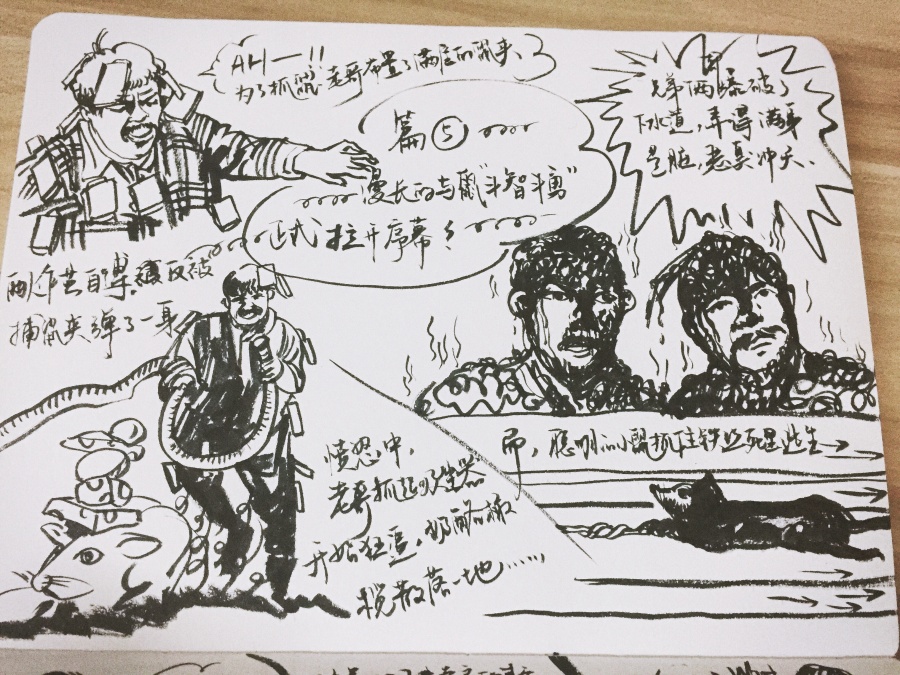 AH—!!
为了抓鼠老哥布置了满屋的鼠夹、
篇⑤
漫长的与鼠“斗智斗勇”
正式拉开序幕！
兄弟俩爆破了
下水道，弄得满身
是脏，老臭冲天、
反被
捕鼠夹弹了一身
愤怒中，
老哥抓起吸尘器
开始狂追，奶酪橄
榄散落一地……
而，聪明的小鼠抓住铁丝死里逃生